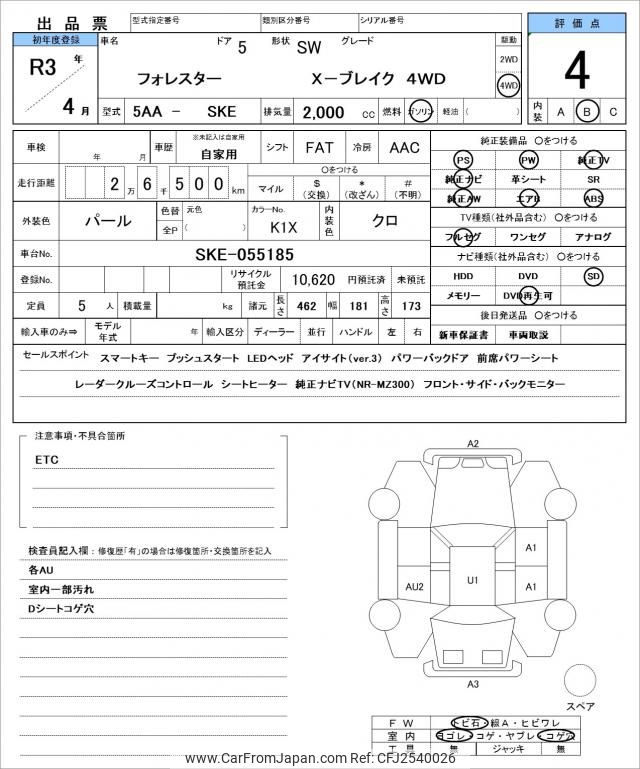 出品票 型式指定番号 類別区分番号 シリアル番号
評価点
初年度登録 車名 ドア 5 形状 SW グレード 駆動
R3 年
4 月
フォレスター X-ブレイク 4WD
2WD
4WD
4
型式 5AA - SKE 排気量 2,000 cc 燃料 ガソリン 軽油 ( )
内装 A B C
車検 年 月 車歴 ※未記入は自家用 自家用 シフト FAT 冷房 AAC
走行距離 2万 6千 5 0 0 km マイル 〇をつける $ (交換) * (改ざん) # (不明)
外装色 パール 色替 全P 元色 ( ) カラーNo. K1X 内装色 クロ
車台No. SKE-055185
登録No. リサイクル預託金 10,620 円預託済 未預託
定員 5 人 積載量 kg 諸元 長さ 462 幅 181 高さ 173
輸入車のみ⇒ モデル年式 年 輸入区分 ディーラー 並行 ハンドル 左 右
純正装備品 〇をつける
PS PW 純正TV
純正ナビ 革シート SR
純正AW エアB ABS
TV種類(社外品含む) 〇をつける
フルセグ ワンセグ アナログ
ナビ種類(社外品含む) 〇をつける
HDD DVD SD
メモリー DVD再生可
後日発送品 〇をつける
新車保証書 車両取説
セールスポイント スマートキー プッシュスタート LEDヘッド アイサイト(ver.3) パワーバックドア 前席パワーシート
レーダークルーズコントロール シートヒーター 純正ナビTV(NR-MZ300) フロント・サイド・バックモニター
注意事項・不具合箇所
ETC
検査員記入欄：修復歴「有」の場合は修復箇所・交換箇所を記入
各AU
室内一部汚れ
Dシートコゲ穴
A2
A1
AU2 U1 A1
A3
スペア
FW トビ石・線A・ヒビワレ
室内 ヨゴレ・コゲ・ヤブレ・コゲ穴
工具 無 ジャッキ 無
www.CarFromJapan.com Ref: CFJ2540026